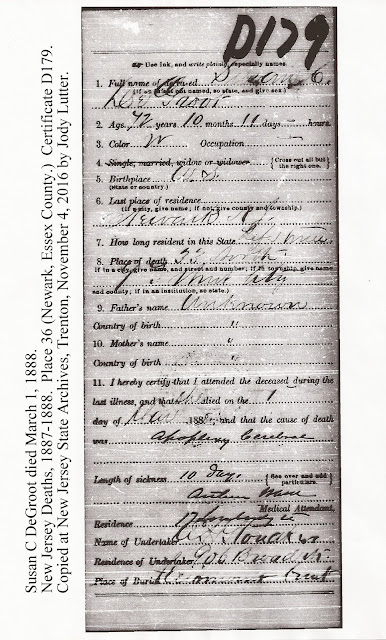 Susan C DeGroot died March 1, 1888.
New Jersey Deaths, 1887-1888. Place 36 (Newark, Essex County.) Certificate D179.
Copied at New Jersey State Archives, Trenton, November 4, 2016 by Jody Lutter.
D179
Use Ink, and write plainly, especially names.
1. Full name of deceased Susan C.
(If an infant not named, so state, and give sex.)
De Groot
2. Age, 72 years 10 months 11 days — hours.
3. Color W Occupation —
4. Single, married, widow or widower { Cross out all but the right one. }
5. Birthplace U.S.
(State or country.)
6. Last place of residence
(If in city, give name; if not, give county and township.)
Newark N.J.
7. How long resident in this State
8. Place of death
If in a city, give name, and street and number; if in township, give name
and county; if in an institution, so state.)
9. Father's name Unknown
Country of birth "
10. Mother's name "
Country of birth "
11. I hereby certify that I attended the deceased during the
last illness, and that died on the 1
day of 188 , and that the cause of death
was Apoplexy
Length of sickness 10 days { See over and add particulars.
Medical Attendant.
Residence 17
Name of Undertaker
Residence of Undertaker 906 Broad St
Place of Burial